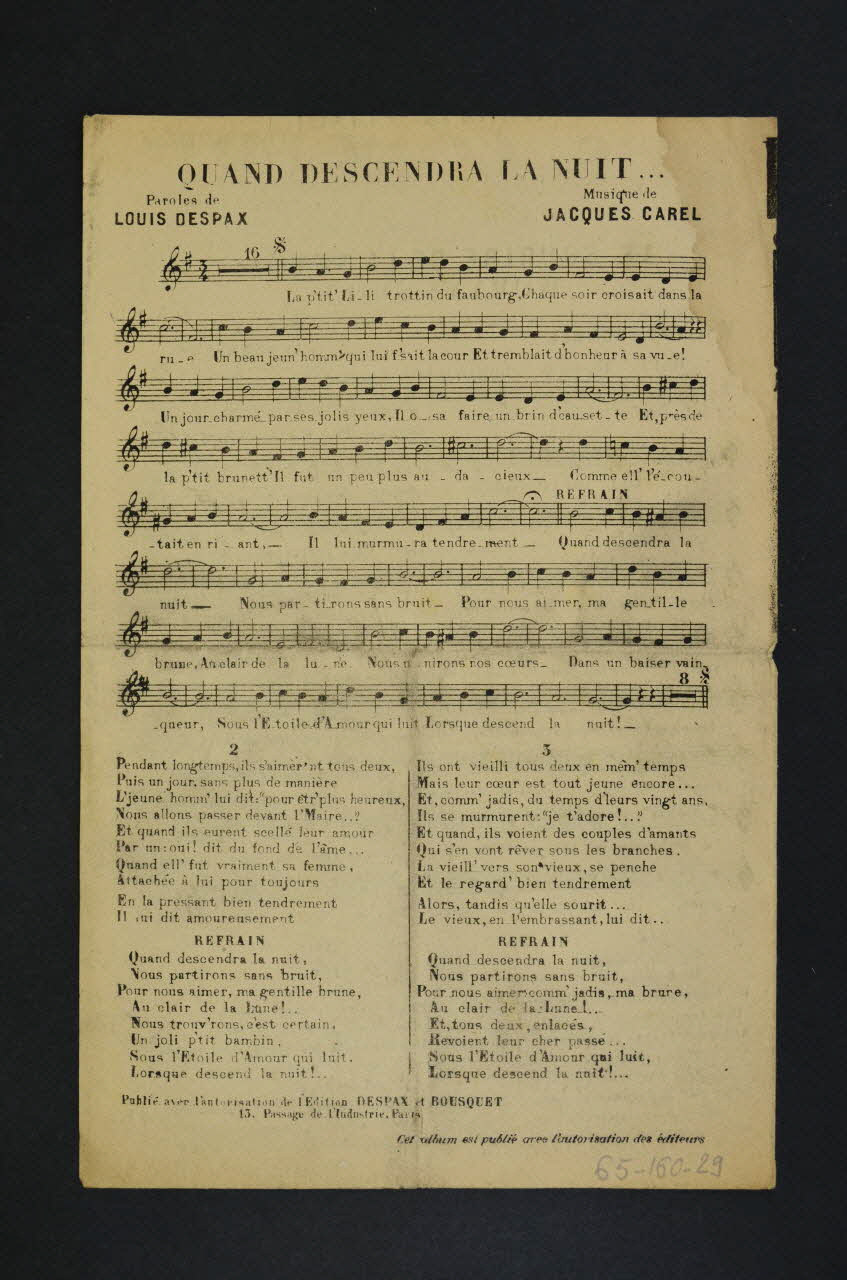 QUAND DESCENDRA LA NUIT...
Paroles de
LOUIS DESPAX
Musique de
JACQUES CAREL
16
La p'tit' Li-li trottin du faubourg, Chaque soir croisait dans la
ru-e Un beau jeun' homm' qui lui f'sait la cour Et tremblait d'bonheur à sa vu-e!
Un jour charmé par ses jolis yeux, Il o-sa faire un brin d'cau-set-te Et, près de
la p'tit brunett' Il fut un peu plus au-da-cieux Comme ell' l'é-cou-
-tait en ri-ant, Il lui murmu-ra tendre-ment
REFRAIN
Quand descendra la
nuit Nous par-ti-rons sans bruit Pour nous ai-mer, ma gen-til-le
brune, Au clair de la lu-ne Nous u-nirons nos cœurs Dans un baiser vain-
8
-queur, Sous l'Etoile d'Amour qui luit Lorsque descend la nuit!
2
Pendant longtemps, ils s'aimèr'nt tous deux,
Puis un jour, sans plus de manière
L'jeune homm' lui dit: "pour êtr' plus heureux,
Nous allons passer devant l'Maire..?
Et quand ils eurent scellé leur amour
Par un: oui! dit du fond de l'âme...
Quand ell' fut vraiment sa femme,
Attachée à lui pour toujours
En la pressant bien tendrement
Il lui dit amoureusement
REFRAIN
Quand descendra la nuit,
Nous partirons sans bruit,
Pour nous aimer, ma gentille brune,
Au clair de la Lune!..
Nous trouv'rons, c'est certain,
Un joli p'tit bambin,
Sous l'Etoile d'Amour qui luit,
Lorsque descend la nuit!..
3
Ils ont vieilli tous deux en mêm' temps
Mais leur cœur est tout jeune encore...
Et, comm' jadis, du temps d'leurs vingt ans,
Ils se murmurent: "je t'adore!..?
Et quand, ils voient des couples d'amants
Qui s'en vont rêver sous les branches,
La vieill' vers son vieux, se penche
Et le regard' bien tendrement
Alors, tandis qu'elle sourit...
Le vieux, en l'embrassant, lui dit..
REFRAIN
Quand descendra la nuit,
Nous partirons sans bruit,
Pour nous aimer comm' jadis, ma brune,
Au clair de la Lune!..
Et, tous deux, enlacés,
Revoient leur cher passé...
Sous l'Etoile d'Amour qui luit,
Lorsque descend la nuit!...
Publié avec l'autorisation de l'Edition DESPAX et BOUSQUET
13, Passage de l'Industrie, Paris
Cet album est publié avec l'autorisation des éditeurs
65-160-29